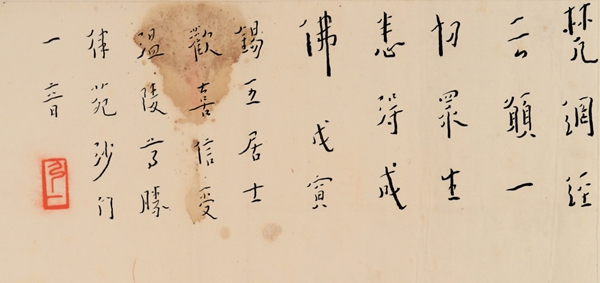 梵網經
云願一
切眾生
悉得成
佛 戊寅
錫五居士
歡喜信受
温陵尊勝
律苑沙門
一音
弘一